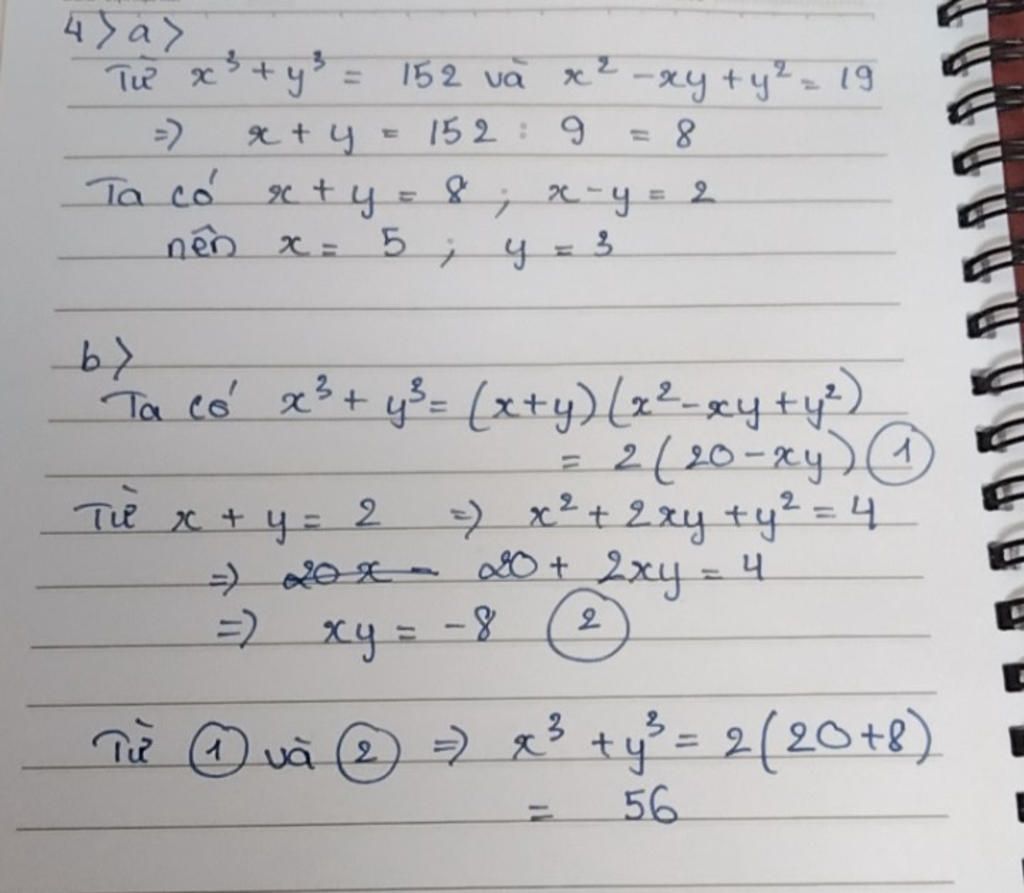 4> a>
Từ x³ + y³ = 152 và x² - xy + y² = 19
=> x + y = 152 : 9 = 8
Ta có x + y = 8 ; x - y = 2
nên x = 5 ; y = 3
b>
Ta có x³ + y³ = (x+y)(x² - xy + y²)
= 2(20 - xy) ①
Từ x + y = 2 => x² + 2xy + y² = 4
=> 20 + 2xy = 4
=> xy = -8 ②
Từ ① và ② => x³ + y³ = 2(20+8)
= 56